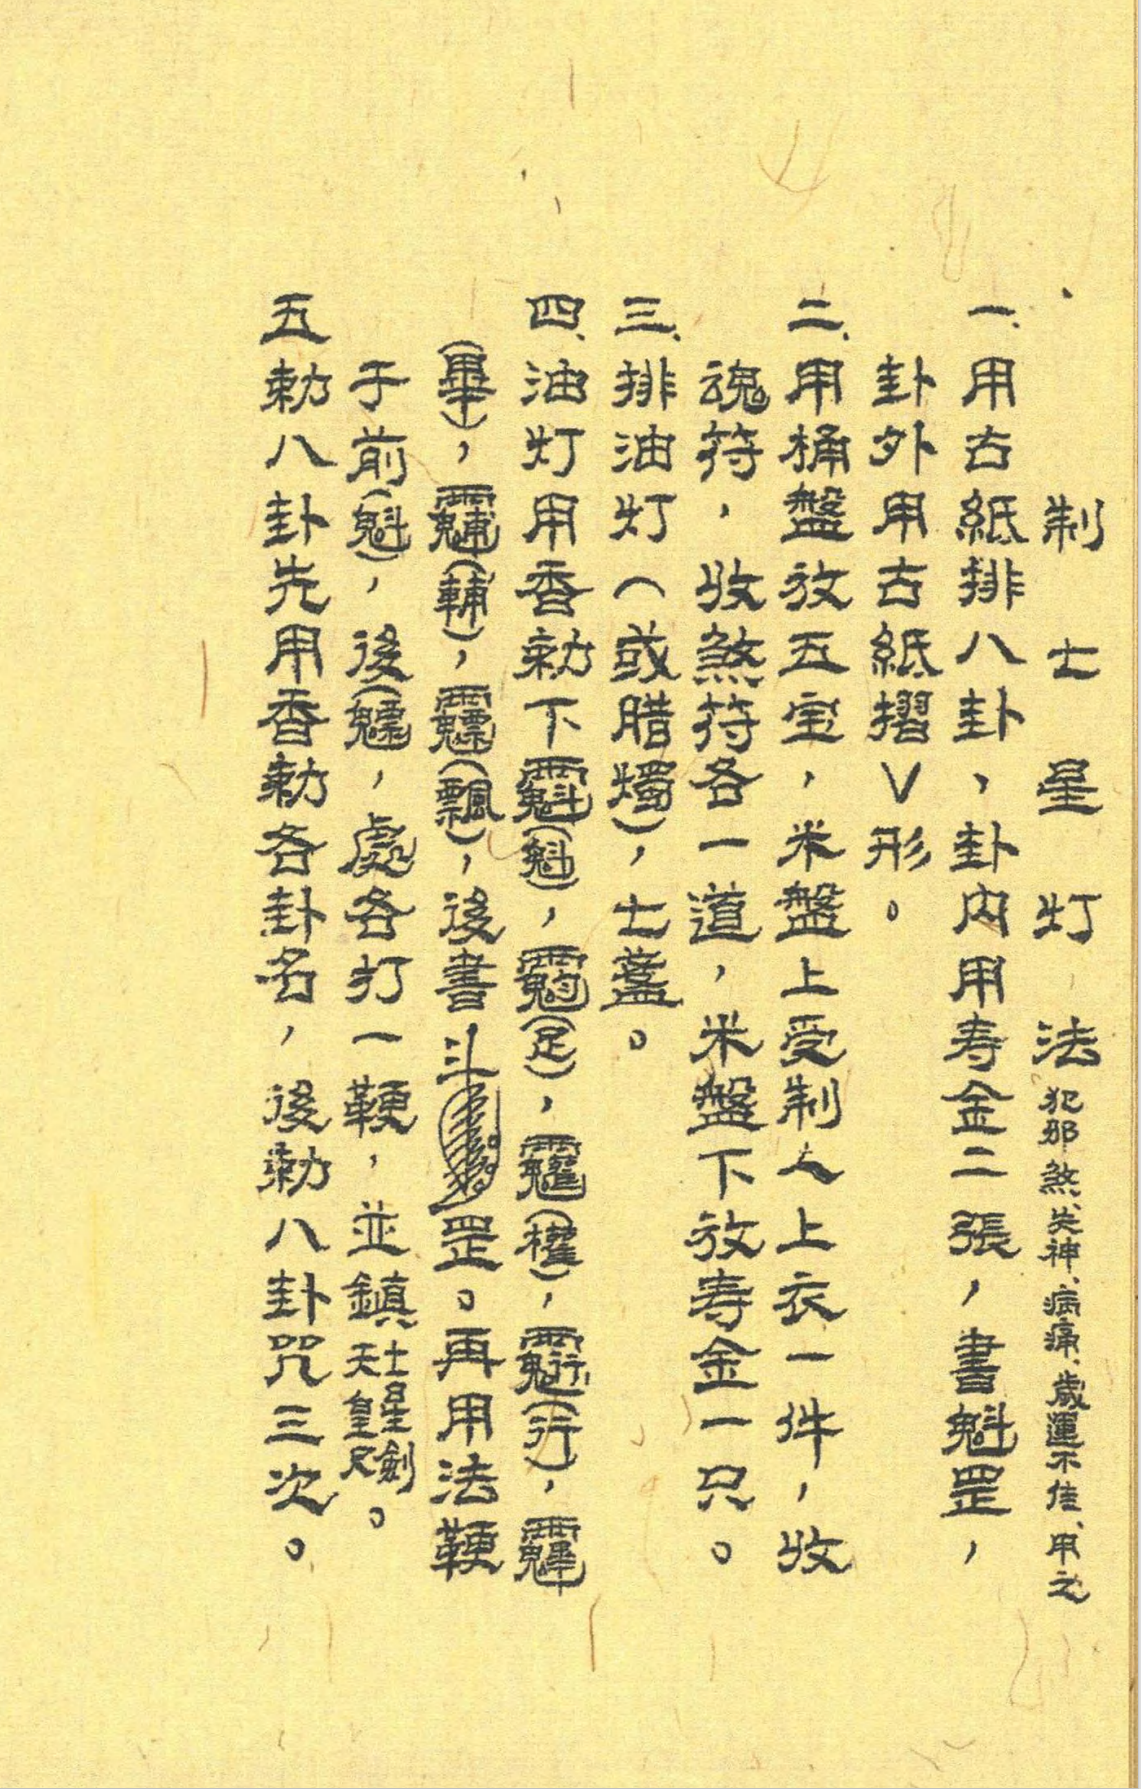 制七星灯法 犯邪煞、失神、病痛、歲運不佳、用之
一、用古紙排八卦，卦內用寿金二張，書魁罡，
卦外用古紙摺V形。
二、用桶盤放五宝，米盤上受制人上衣一件，收
魂符，收煞符各一道，米盤下放寿金一只。
三、排油灯（或腊燭），七盞。
四、油灯用香勅下（魁），（），（權），（行），
（畢），（輔），（飄），後書斗罡。再用法鞭
于前（魁），後（魒），處各打一鞭，並鎮七星劍天皇尺。
五勅八卦先用香勅各卦名，後勅八卦咒三次。